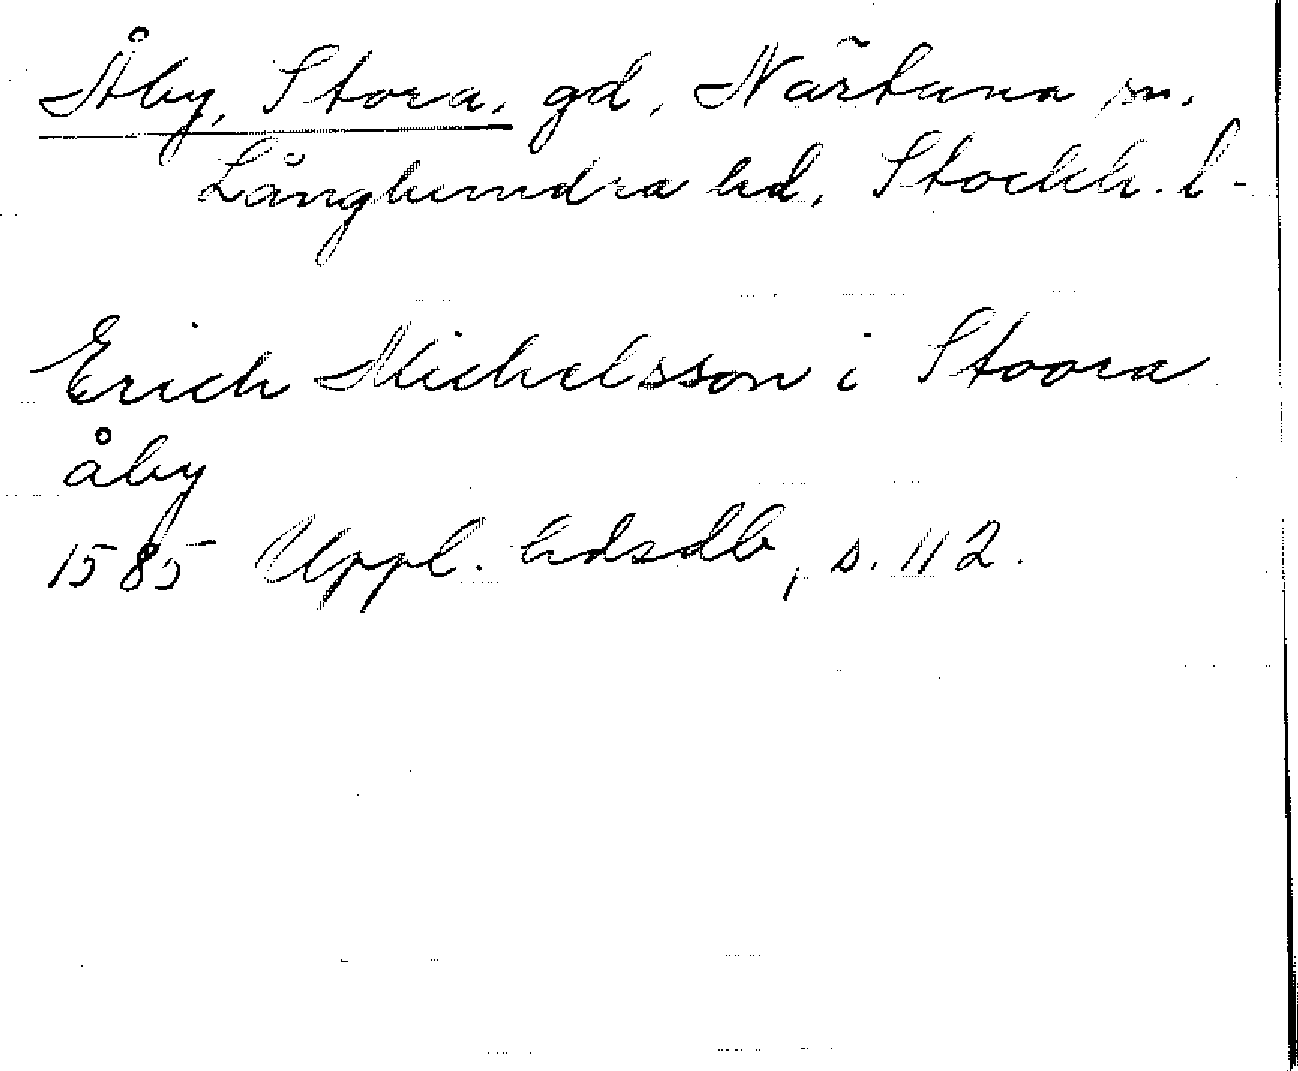 Åby, Stora, gd, Närtuna sn.
Långhundra hd, Stockh. l.
Erich Michelsson i Stoora
åby
1585 Uppl. hdsdb, s. 112.